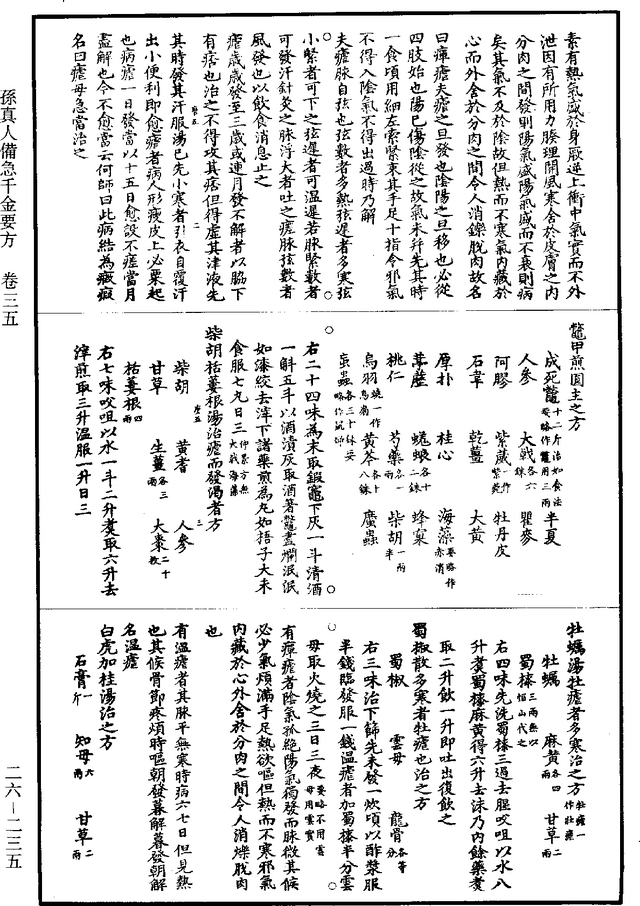 孫真人備急千金要方　卷三五
二六—二三五
素有熱氣盛於身厥逆上衝中氣實而不外
泄因有所用力腠理開風寒舍於皮膚之內
分肉之間發則陽氣盛陽氣盛而不衰則病
矣其氣不及於陰故但熱而不寒氣內藏於
心而外舍於分肉之間令人消鑠脫肉故名
曰癉瘧夫瘧之且發也陰陽之且移也必從
四肢始也陽已傷陰從之故氣未并先其時
一食頃用細左索緊束其手足十指令邪氣
不得入陰氣不得出過時乃解
夫瘧脉自弦也弦數者多熱弦遲者多寒弦
小緊者可下之弦遲者可溫遲若脉緊數者
可發汗針灸之脉浮大者吐之瘧脉弦數者
風發也以飲食消息止之
瘧歲歲發至三歲或連月發不解者以脇下
有痞也治之不得攻其痞但得虛其津液先
其時發其汗服湯已先小寒者引衣自覆汗
出小便利即愈瘧者病人形瘦皮上必粟起
也病瘧一日發當以十五日愈設不瘥當月
盡解也今不愈當云何師曰此病結為癥瘕
名曰瘧母急當治之
鼈甲煎圓主之方
成死鼈十二斤治如食法要略作鼈甲三兩 半夏
人參 大戟各八銖 瞿麥
阿膠 紫葳一作紫菀 牡丹皮
石韋 乾薑 大黃
厚朴 桂心 海藻要略作赤消
葶藶 蜣蜋各十二銖 蜂窠
桃仁 芍藥各一兩 柴胡一兩半
烏羽燒一作烏扇 黃芩各十八銖 䗪蟲
蝱蟲各三十枚要略作鼠婦
右二十四味為末取鍛竈下灰一斗清酒
一斛五斗以酒漬灰取酒著鼈盡爛泯泯
如漆絞去滓下諸藥煎為丸如梧子大未
食服七丸日三仲景方無大戟海藻
柴胡栝蔞根湯治瘧而發渴者方
柴胡 黃耆 人參三
甘草 生薑各三兩 大棗二十枚
栝蔞根四兩
右七味㕮咀以水一斗二升煑取六升去
滓煎取三升溫服一升日三
牡蠣湯牡瘧者多寒治之方牡瘧一作牡瘧
牡蠣 麻黃各四兩 甘草二兩
蜀漆三兩無以恒山代之
右四味先洗蜀漆三過去腥㕮咀以水八
升煑蜀漆麻黃得六升去沫乃內餘藥煑
取二升飲一升即吐出復飲之
蜀漆散多寒者牡瘧也治之方
蜀漆 雲母 龍骨各等分
右三味治下篩先未發一炊頃以酢漿服
半錢臨發服一錢溫瘧者加蜀漆半分雲
母取火燒之三日三夜要略不用雲母用雲實
有癉瘧者陰氣孤絕陽氣獨發而脉微其候
必少氣煩滿手足熱欲嘔但熱而不寒邪氣
內藏於心外舍於分肉之間令人消爍脫肉
也
有溫瘧者其脉平無寒時病六七日但見熱
也其候骨節疼煩時嘔朝發暮解暮發朝解
名溫瘧
白虎加桂湯治之方
石膏一斤 知母六兩 甘草二兩